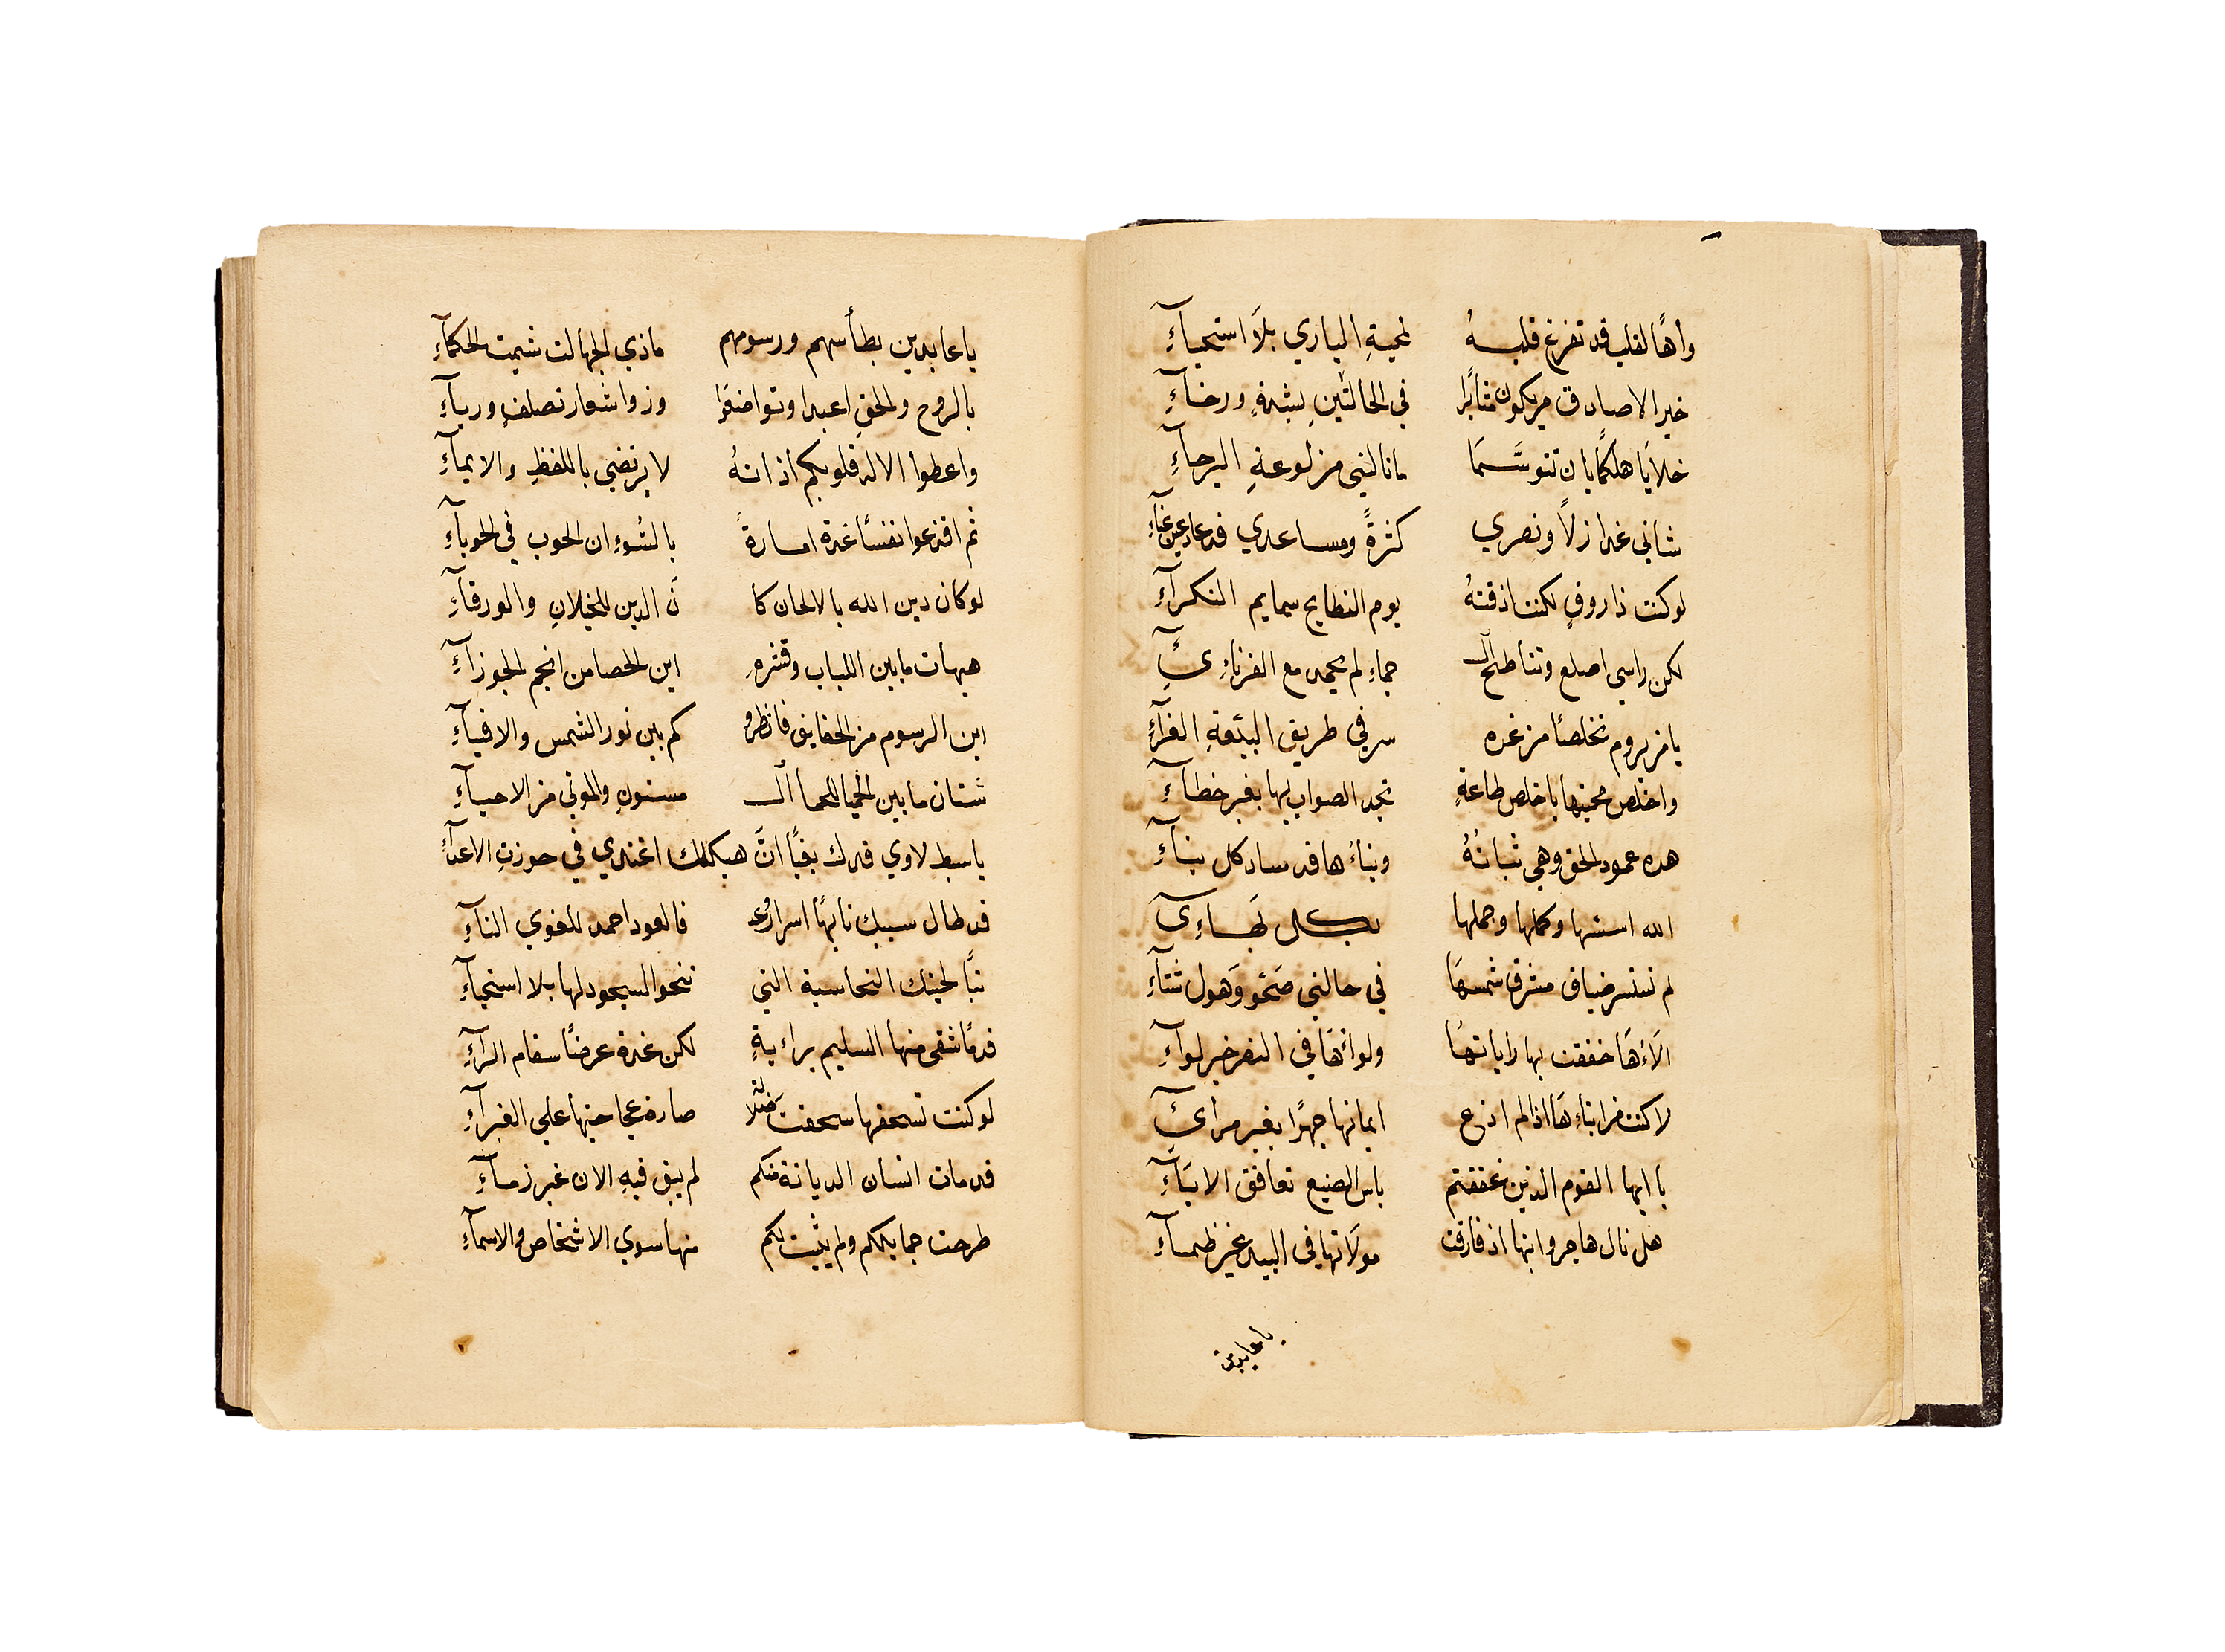 واهًا لقلب قد تفرغ قلبهُ لمحبةِ الباري بلا استحيآءِ
خير الاصادق من يكون مثابرًا في الحالتين بشدةٍ ورخآءِ
خلايَا هلكما بان تتوسَّمَا ما نالني من لوعةِ البرحآءِ
شاني غدا زلاً ونصري كثرةً ومساعدي قد عاد عين عنآءِ
لو كنت ذا روقٍ لكنت اذقتهُ يوم النطايح سمايم النكرآءِ
لكن راسي اصلع وتناطح الـ جماءِ لم يحمد مع القرناءِ
يا من يروم تخلصًا من غده سر في طريق البيّعةِ الغرآءِ
واخلص محبتها باخلص طاعةٍ تجد الصواب بها بغير خطآءِ
هده عمود الحق وهي ثباتهُ وبناءُها قد ساد كل بنآءِ
الله اسسها وكملها وجملها بكل بهاءِ
لم تستسر ضياق مشرق شمسهَا في حالتي صَحْوٍ وَهول شتآءِ
الآءُهَا خفقت بها راياتهَا ولواءُهَا في النصر خير لوآءِ
لا كنت من ابناءِهَا اذا لم اذع ايمانها جهرًا بغير مرآئي
يا ايها القوم الذين عققتم باس الصنيع تعافق الابنَآءِ
هل نال هاجر وابنها اذ فارقت مولاتها في البيد غير ظمآءِ
يا عابدين
يا عابدين بطأسهم ورسومهم ماذي الجهالت شيمت الحكمآءِ
بالروح والحق اعبدا وتواضعوا وزوا شعار تصلف وريآءِ
واعطوا الاله قلوبكم اذ انهُ لا يرتضي باللفظِ والايمآءِ
ثم اقدعوا نفسًا غدة امارةً بالسُوءِ ان الحوب في الحوبآءِ
لو كان دين الله بالالحان كا نَ الدين للخيلان والورقآءِ
هيهات ما بين اللباب وقشرهِ اين الحصا من انجم الجوزآءِ
اين الرسوم من الحقايق فانظروا كم بين نور الشمس والافيآءِ
شتان ما بين الحيا للحما الـ مسنون والموتي من الاحيآءِ
يا سبط لاوي قدك بغيًا انَّ هيكلك اغتدي في حوزت الاعدآءِ
قد طال سبيك نابهًا اسراركم فالعود احمد للغوي النآءِ
تبًا لحيتك النحاسية التي تنحو السجود لها بلا استحيآءِ
قدمًا شفى منها السليم براءيةٍ لكن غدة عرضًا سقام الرآءِ
لو كنت تسحقها سحقت ضلالة صارة عجاجتها علي الغبرآءِ
قد مات انسان الديانة منكم لم يبق فيهِ الان غير ذمآءِ
طرحت جمايلكم ولم يثبت لكم منها سوي الاشخاص والاسمآءِ